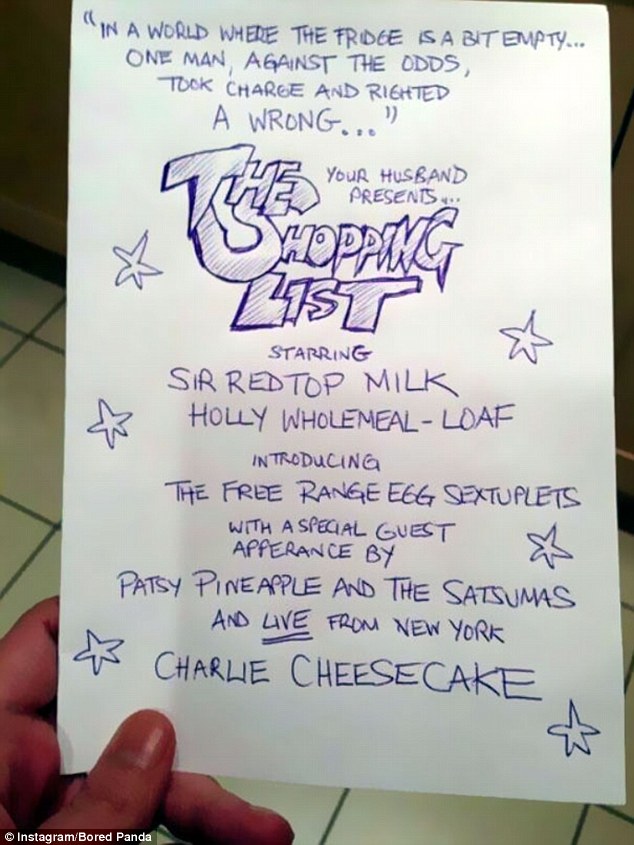 "IN A WORLD WHERE THE FRIDGE IS A BIT EMPTY...
ONE MAN, AGAINST THE ODDS,
TOOK CHARGE AND RIGHTED
A WRONG..."
YOUR HUSBAND
PRESENTS...
THE
SHOPPING
LIST
STARRING
SIR REDTOP MILK
HOLLY WHOLEMEAL-LOAF
INTRODUCING
THE FREE RANGE EGG SEXTUPLETS
WITH A SPECIAL GUEST
APPERANCE BY
PATSY PINEAPPLE AND THE SATSUMAS
AND LIVE FROM NEW YORK
CHARLIE CHEESECAKE
© Instagram/Bored Panda